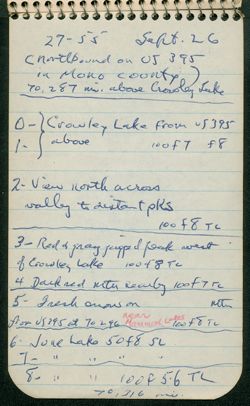 27-55 Sept. 26
(northbound on US 395
in Mono County)
70,287 mi. above Crowley Lake
0- } Crowley Lake from US 395
1- } above 100 f7 f8
2- View north across
valley to distant pks
100 f8 TL
3- Red & gray jagged peak west
of Crowley Lake 100 f8 TL
4 Dark red mtn nearby 100 f7 TL
5- Fresh snow on mtn
near
from US 395 at 70,296 100 f8 TL
6- Lake 50 f8 SL
7- " " "
8- " " 100 f5.6 TL
70,316 mi.